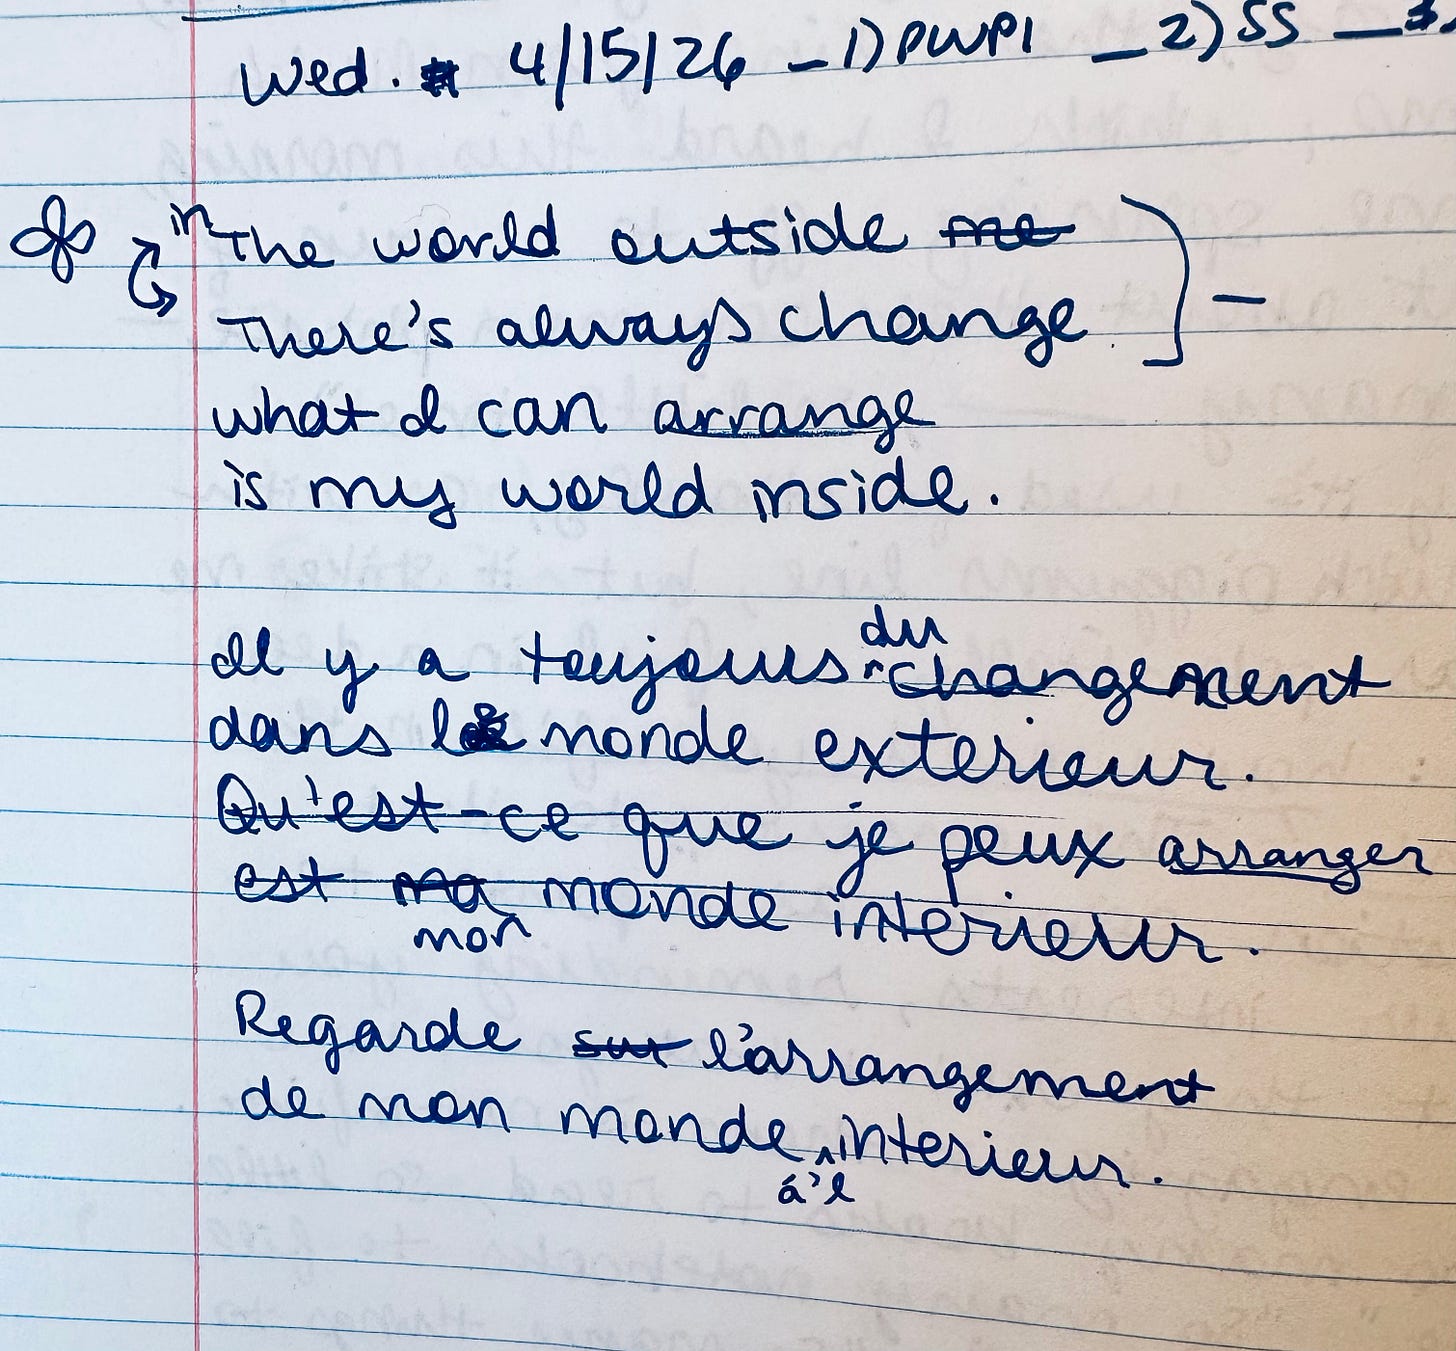 Wed. 4/15/26 – 1) PWPI – 2) SS –
in The world outside me
There's always change –
what I can arrange
is my world inside.
Il y a toujours du changement
dans le monde exterieur.
Qu'est-ce que je peux arranger
est ma mon monde interieur.
Regarde sur l'arrangement
de mon monde á'l interieur.